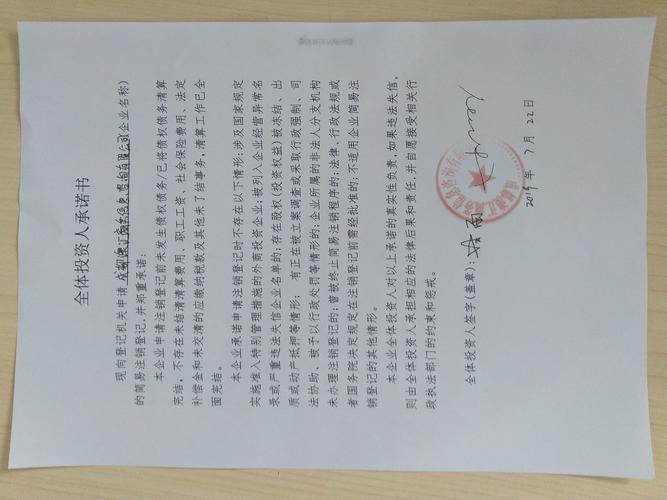 全体投资人承诺书
现向登记机关申请 (企业名称)
的简易注销登记,并郑重承诺:
本企业申请注销登记前未发生债权债务/已将债权债务清算
完结,不存在未结清清算费用、职工工资、社会保险费用、法定
补偿金和未交清的应缴纳税款及其他未了结事务,清算工作已全
面完结。
本企业承诺申请注销登记时不存在以下情形:涉及国家规定
实施准入特别管理措施的外商投资企业;被列入企业经营异常名
录或严重违法失信企业名单的;存在股权(投资权益)被冻结、出
质或动产抵押等情形; 有正在被立案调查或采取行政强制、司
法协助、被予以行政处罚等情形的;企业所属的非法人分支机构
未办理注销登记的;曾被终止简易注销程序的;法律、行政法规或
者国务院决定规定在注销登记前需经批准的;不适用企业简易注
销登记的其他情形。
本企业全体投资人对以上承诺的真实性负责,如果违法失信,
则由全体投资人承担相应的法律后果和责任,并自愿接受相关行
政执法部门的约束和惩戒。
全体投资人签字(盖章):
2019 年 7 月 22 日